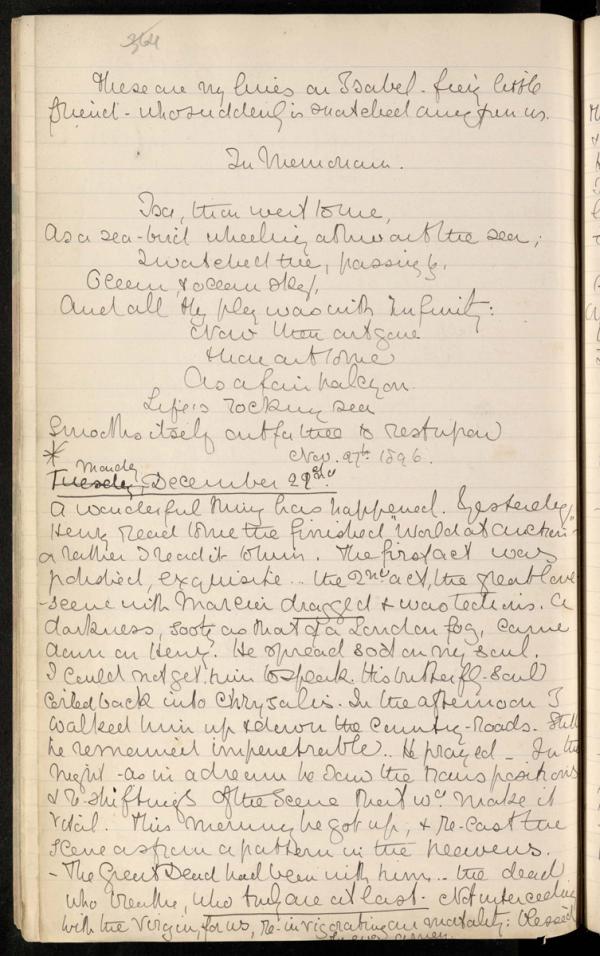 364
These are my lines on Isabel - fairy little
friend - who suddenly is snatched away from us.
In Memoriam.
Isa, thou wert to me,
As a sea-bird wheeling athwart the sea;
I watched thee, passing by,
Ocean, & ocean sky,
And all thy play was with Infinity:
Now thou art gone
thou art to me
As a fair halcyon
Life's rocking sea
Smooths itself out for thee to rest upon
Nov. 27th 1896.
* Monday
Tuesday, December 29nd
A wonderful thing has happened. Yesterday,
Henry read to me the finished "World at Auction"
or rather I read it to him. The first act was
polished, exquisite .. the 2nd act, the great love
-scene with Marcia dragged & was tedious. A
darkness, sooty as that of a London fog, came
down on Henry. He spread soot on my soul.
I could not get him to speak. His butterfly-soul
coiled back into chrysalis. In the afternoon I
walked him up & down the country-roads. Still
he remained impenetrable .. He prayed - In the
night - as in a dream he saw the transpositions
& re-shiftings of the scene that wd. make it
vital. This morning he got up, & re-cast the
scene as from a pattern in the heavens.
- The Great Dead had been with him .. the dead
who breathe, who are at last. Not interceding
with the Virgin, for us, re-invigorating our mortality: blessed